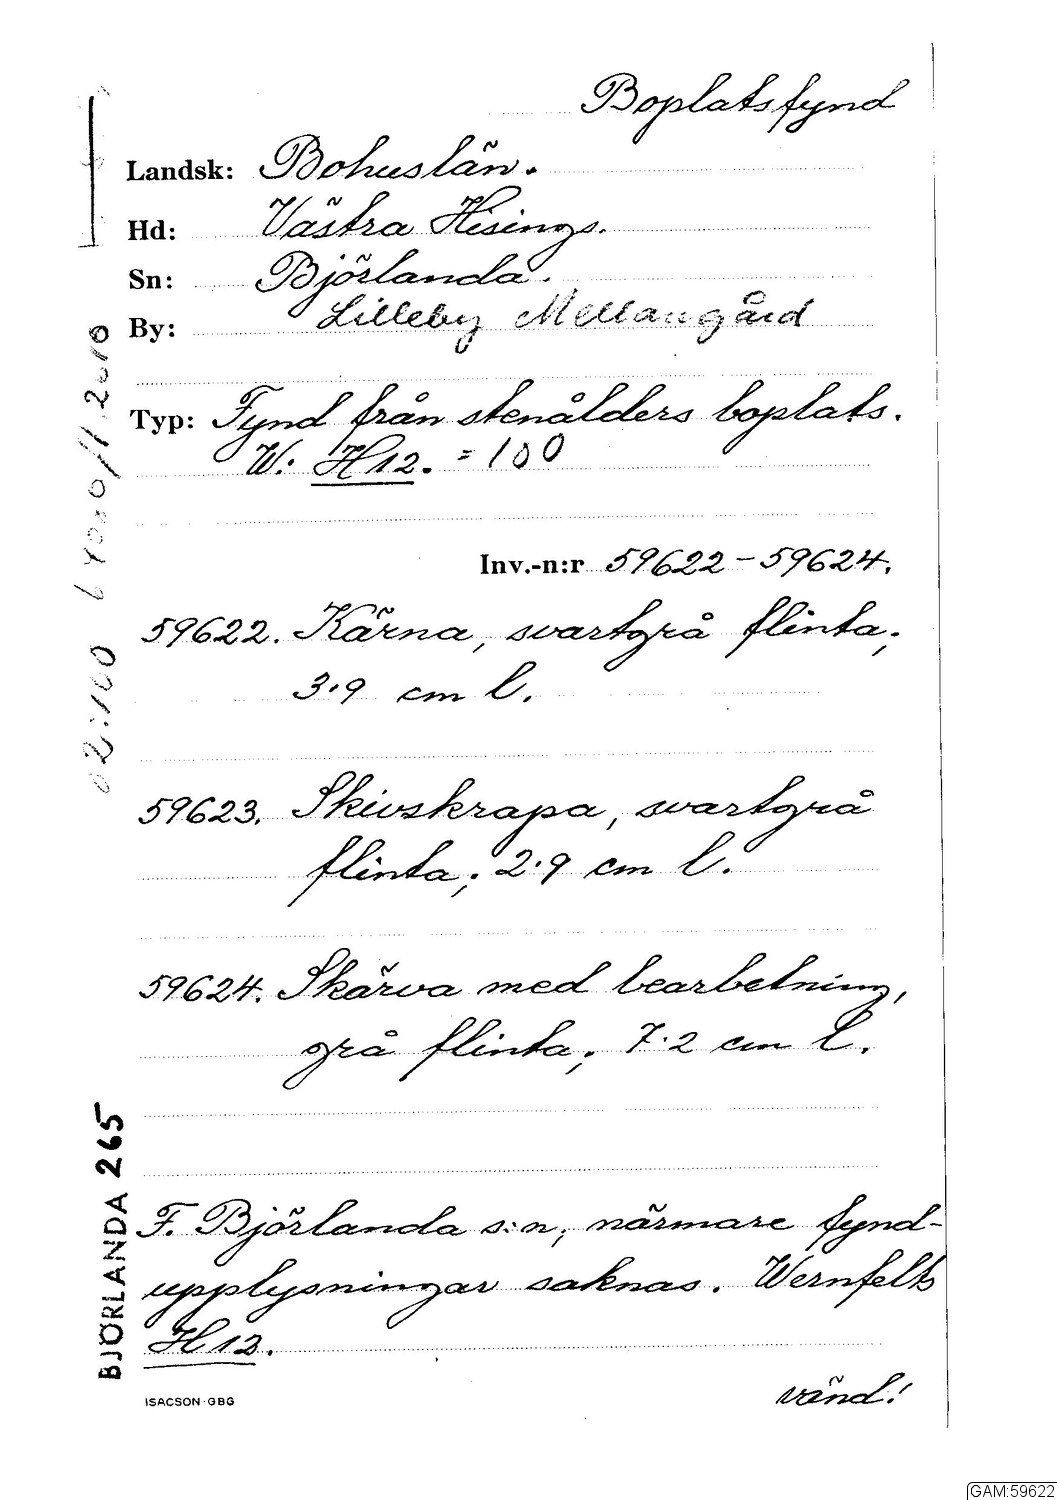 Boplatsfynd
Landsk: Bohuslän.
Hd: Västra Hisings.
Sn: Björlanda.
By: Lilleby Mellangård
Typ: Fynd från stenålders boplats.
W. H 12. = 100
Inv.-n:r 59622-59624.
59622. Kärna, svartgrå flinta;
3.9 cm l.
59623. Skivskrapa, svartgrå
flinta; 2.9 cm l.
59624. Skärva med bearbetning,
grå flinta; 7.2 cm l.
F. Björlanda s:n; närmare fynd-
upplysningar saknas. Wernfelts
H 12.
vänd!
ISACSON·GBG
BJÖRLANDA 265
GAM:59622